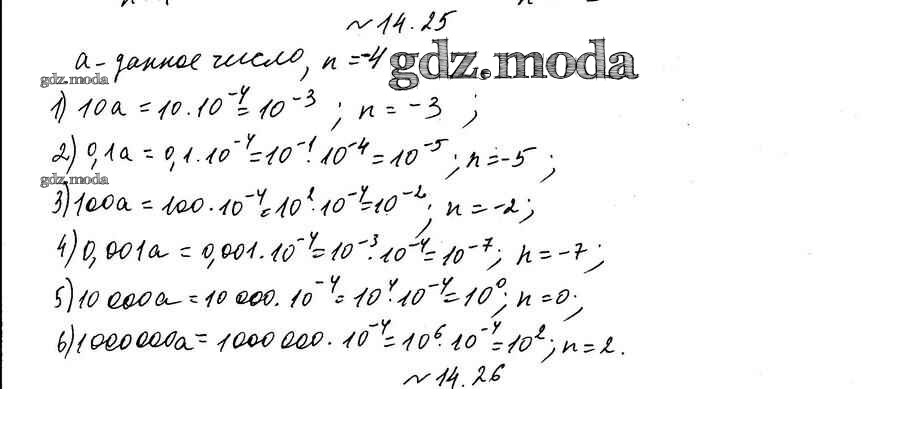 ~14.25
a - данное число, n = -4 gdz.moda
gdz.moda
1) 10a = 10 · 10⁻⁴ = 10⁻³ ; n = -3 ;
2) 0,1a = 0,1 · 10⁻⁴ = 10⁻¹ · 10⁻⁴ = 10⁻⁵ ; n = -5 ;
gdz.moda
3) 100a = 100 · 10⁻⁴ = 10² · 10⁻⁴ = 10⁻² ; n = -2 ;
4) 0,001a = 0,001 · 10⁻⁴ = 10⁻³ · 10⁻⁴ = 10⁻⁷ ; n = -7 ;
5) 10 000a = 10 000 · 10⁻⁴ = 10⁴ · 10⁻⁴ = 10⁰ ; n = 0 ;
6) 1000 000a = 1000 000 · 10⁻⁴ = 10⁶ · 10⁻⁴ = 10² ; n = 2.
~14.26